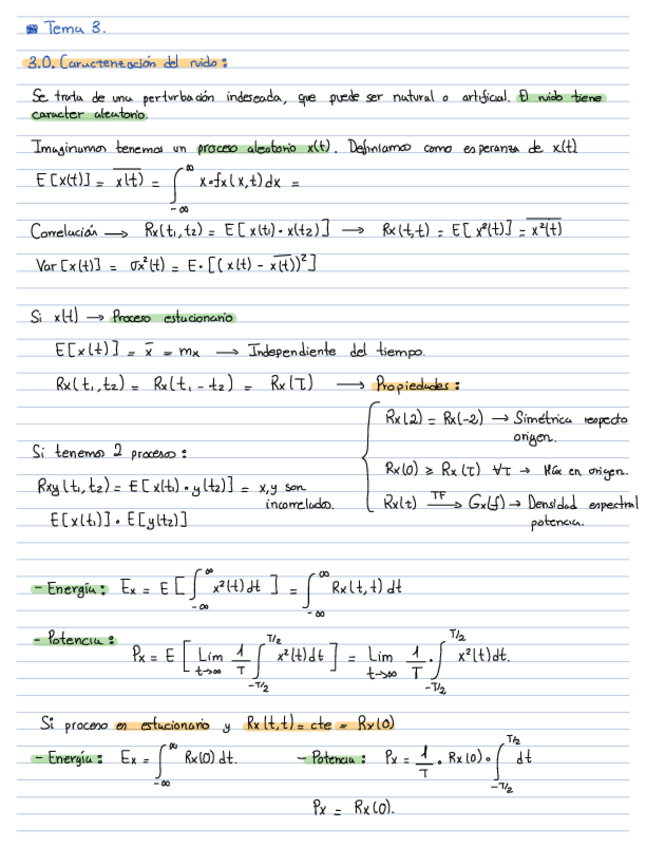 Tema 3.
3.0. Caracterización del ruido:
Se trata de una perturbación indeseada, que puede ser natural o artificial. El ruido tiene
caracter aleatorio.
Imaginamos tenemos un proceso aleatorio x(t). Definiamos como esperanza de x(t)
E[x(t)] = \overline{x(t)} = ∫_{-∞}^{∞} x·fx(x,t)dx =
Correlación → Rx(t1,t2) = E[x(t1)·x(t2)] → Rx(t,t) = E[x²(t)] = \overline{x²(t)}
Var[x(t)] = σx²(t) = E·[(x(t) - \overline{x(t)})²]
Si x(t) → Proceso estacionario
E[x(t)] = \overline{x} = mx → Independiente del tiempo.
Rx(t1,t2) = Rx(t1-t2) = Rx(τ) → Propiedades:
Rx(2) = Rx(-2) → Simétrica respecto
origen.
Rx(0) ≥ Rx(τ) ∀τ → Máx en origen.
Rx(τ) \xrightarrow{TF} Gx(f) → Densidad espectral
potencia.
Si tenemos 2 procesos:
Rxy(t1,t2) = E[x(t1)·y(t2)] = x,y son
incorrelados.
E[x(t1)]·E[y(t2)]
- Energía: Ex = E[∫_{-∞}^{∞} x²(t)dt] = ∫_{-∞}^{∞} Rx(t,t)dt
- Potencia:
Px = E[Lim_{t→∞} 1/T ∫_{-T/2}^{T/2} x²(t)dt] = Lim_{t→∞} 1/T · ∫_{-T/2}^{T/2} x²(t)dt.
Si proceso es estacionario y Rx(t,t) = cte = Rx(0)
- Energía: Ex = ∫_{-∞}^{∞} Rx(0)dt. - Potencia: Px = 1/T · Rx(0) · ∫_{-T/2}^{T/2} dt
Px = Rx(0).